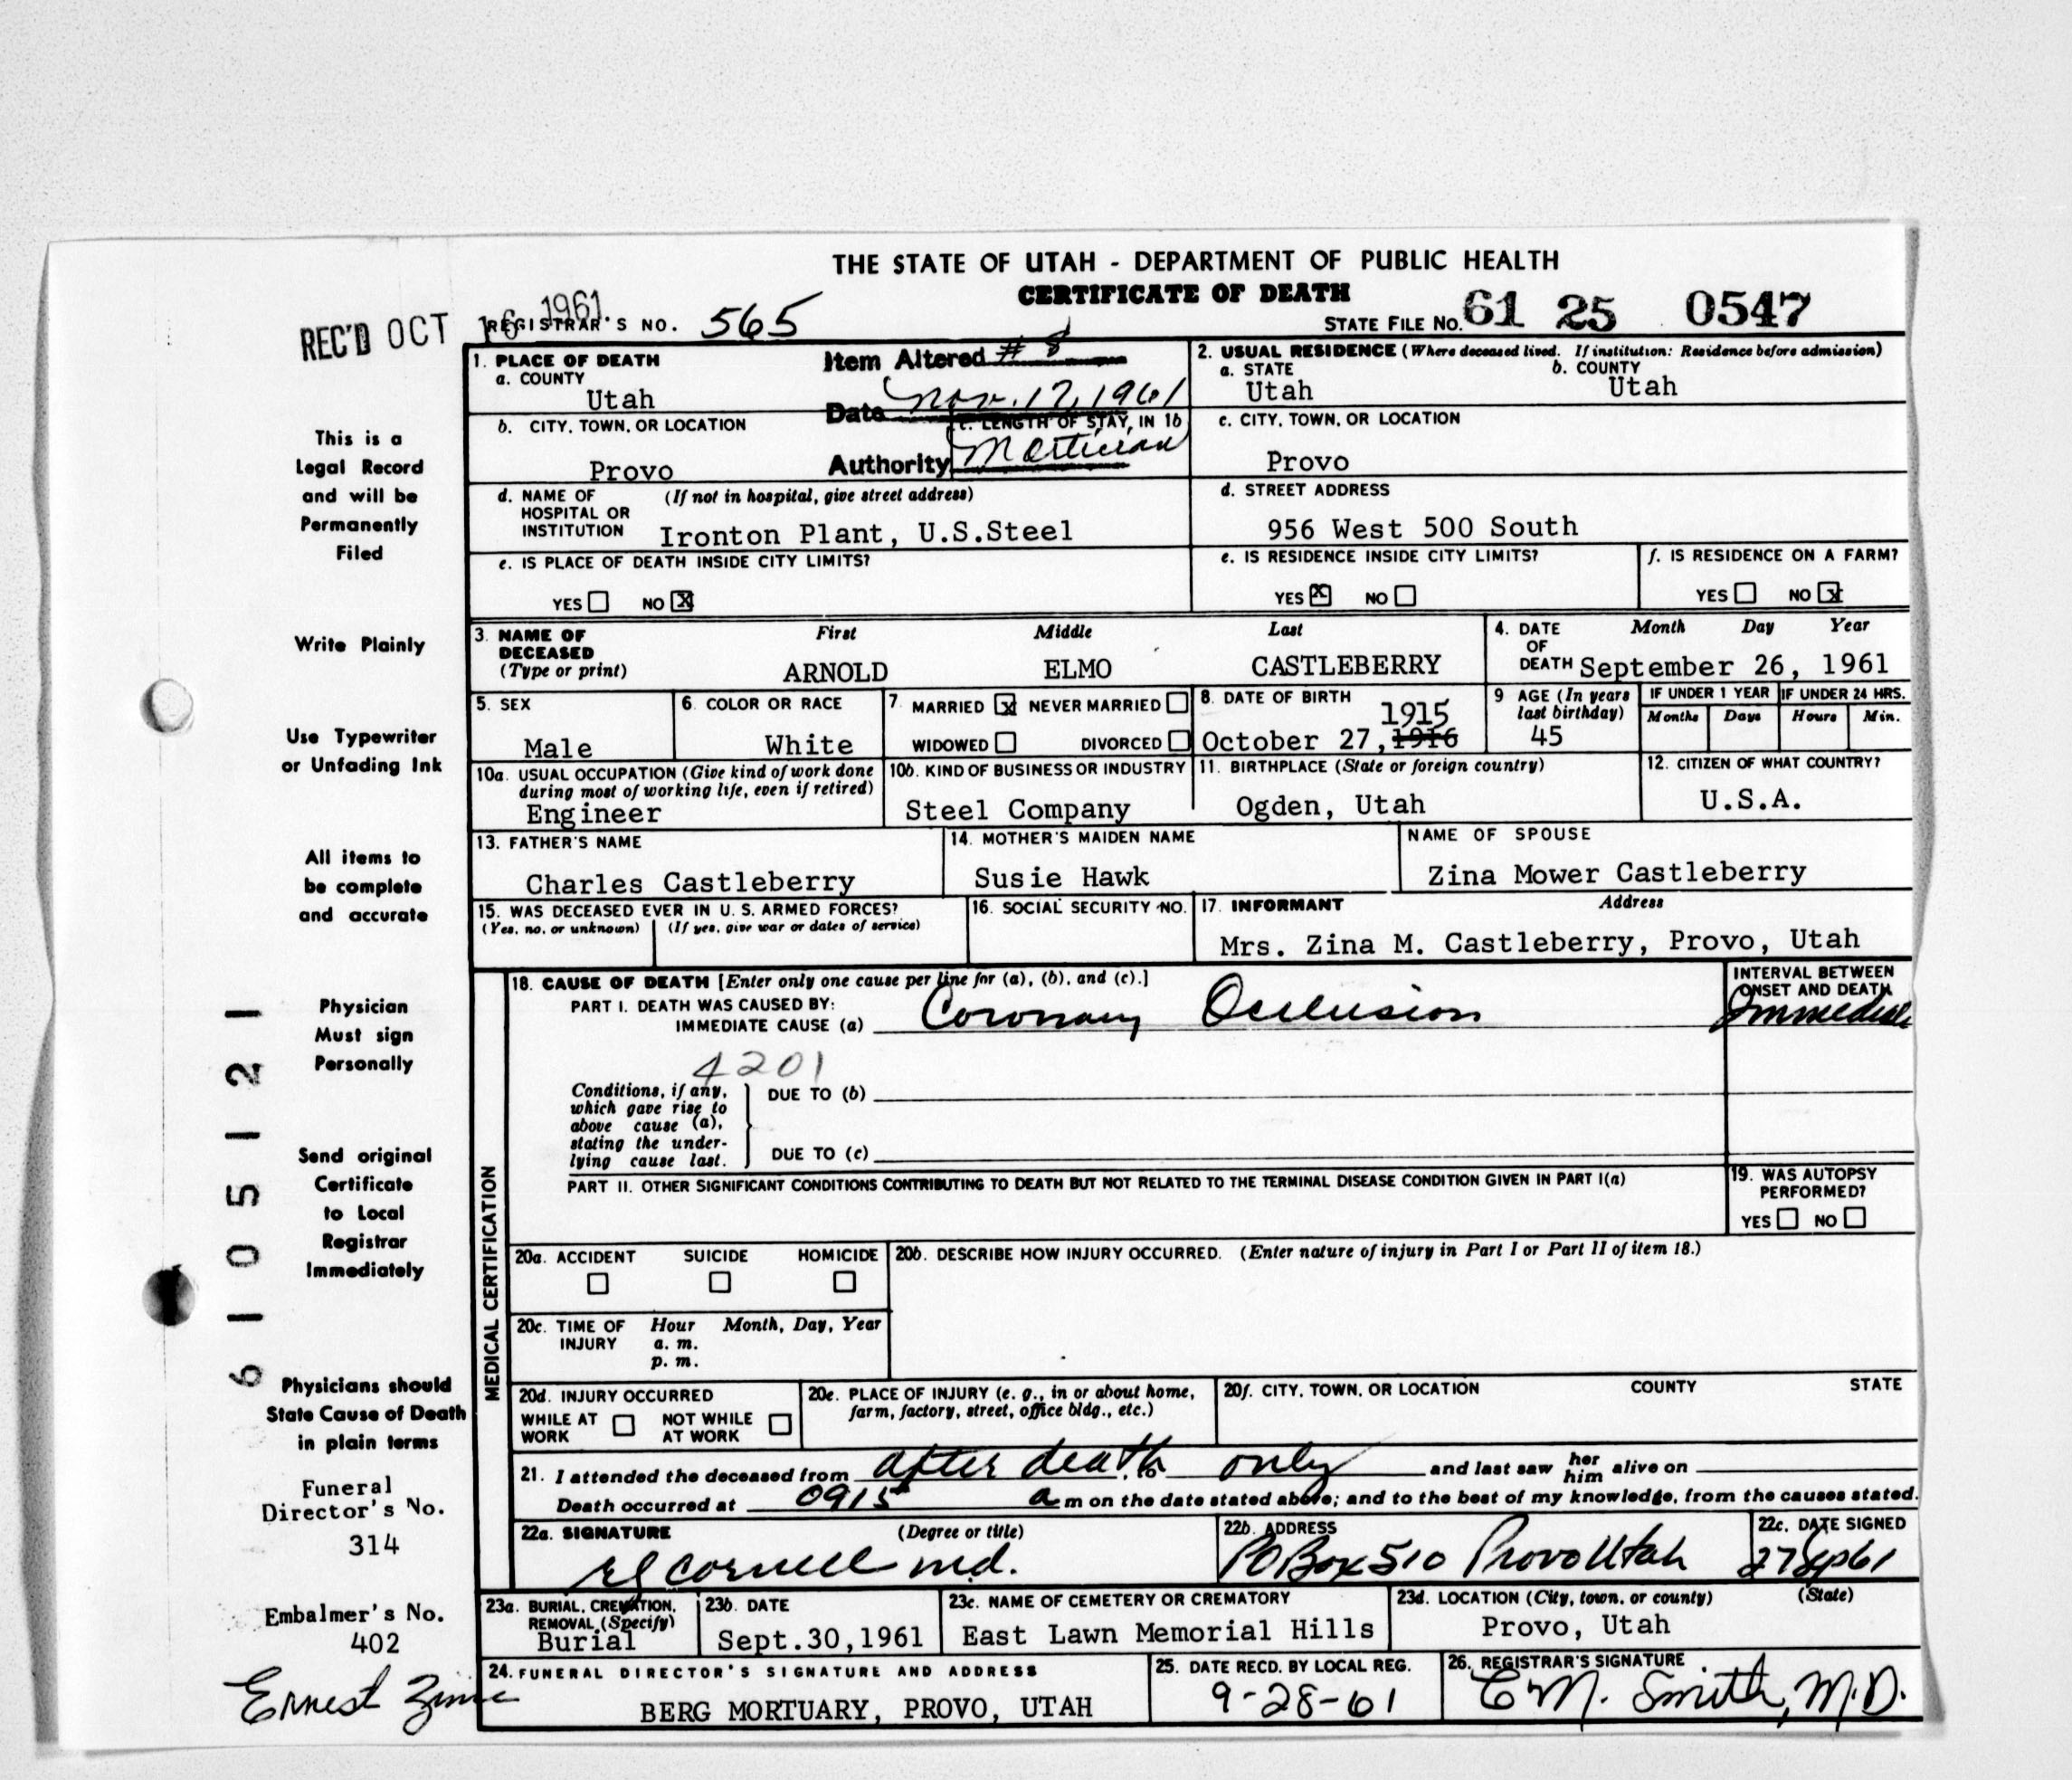 THE STATE OF UTAH - DEPARTMENT OF PUBLIC HEALTH
CERTIFICATE OF DEATH
REC'D OCT 16 1961
REGISTRAR'S NO. 565
STATE FILE NO. 61 25 0547
1. PLACE OF DEATH
Item Altered # 8
a. COUNTY
Utah
Date Nov. 17, 1961
2. USUAL RESIDENCE (Where deceased lived. If institution: Residence before admission)
a. STATE
Utah
b. COUNTY
Utah
b. CITY, TOWN, OR LOCATION
Provo
c. LENGTH OF STAY, IN 1b
Authority Mortician
c. CITY, TOWN, OR LOCATION
Provo
d. NAME OF HOSPITAL OR INSTITUTION
(If not in hospital, give street address)
Ironton Plant, U.S.Steel
d. STREET ADDRESS
956 West 500 South
e. IS PLACE OF DEATH INSIDE CITY LIMITS?
YES NO X
e. IS RESIDENCE INSIDE CITY LIMITS?
YES X NO
f. IS RESIDENCE ON A FARM?
YES NO X
3. NAME OF DECEASED
(Type or print)
First Middle Last
ARNOLD ELMO CASTLEBERRY
4. DATE OF DEATH
Month Day Year
September 26, 1961
5. SEX
Male
6. COLOR OR RACE
White
7. MARRIED X NEVER MARRIED
WIDOWED DIVORCED
8. DATE OF BIRTH
1915
October 27, 1916
9 AGE (In years last birthday)
45
IF UNDER 1 YEAR
Months Days
IF UNDER 24 HRS.
Hours Min.
10a. USUAL OCCUPATION (Give kind of work done during most of working life, even if retired)
Engineer
10b. KIND OF BUSINESS OR INDUSTRY
Steel Company
11. BIRTHPLACE (State or foreign country)
Ogden, Utah
12. CITIZEN OF WHAT COUNTRY?
U.S.A.
13. FATHER'S NAME
Charles Castleberry
14. MOTHER'S MAIDEN NAME
Susie Hawk
NAME OF SPOUSE
Zina Mower Castleberry
15. WAS DECEASED EVER IN U. S. ARMED FORCES?
(Yes, no, or unknown) (If yes, give war or dates of service)
16. SOCIAL SECURITY NO.
17. INFORMANT Address
Mrs. Zina M. Castleberry, Provo, Utah
MEDICAL CERTIFICATION
18. CAUSE OF DEATH [Enter only one cause per line for (a), (b), and (c).]
PART I. DEATH WAS CAUSED BY:
IMMEDIATE CAUSE (a) Coronary Occlusion
INTERVAL BETWEEN ONSET AND DEATH
Immediate
4201
Conditions, if any, which gave rise to above cause (a), stating the underlying cause last.
DUE TO (b)
DUE TO (c)
PART II. OTHER SIGNIFICANT CONDITIONS CONTRIBUTING TO DEATH BUT NOT RELATED TO THE TERMINAL DISEASE CONDITION GIVEN IN PART I(a)
19. WAS AUTOPSY PERFORMED?
YES NO
20a. ACCIDENT SUICIDE HOMICIDE
20b. DESCRIBE HOW INJURY OCCURRED. (Enter nature of injury in Part I or Part II of item 18.)
20c. TIME OF INJURY
Hour Month, Day, Year
a. m.
p. m.
20d. INJURY OCCURRED
WHILE AT WORK NOT WHILE AT WORK
20e. PLACE OF INJURY (e. g., in or about home, farm, factory, street, office bldg., etc.)
20f. CITY, TOWN, OR LOCATION COUNTY STATE
21. I attended the deceased from after death to only and last saw her him alive on
Death occurred at 0915 a m on the date stated above; and to the best of my knowledge, from the causes stated.
22a. SIGNATURE (Degree or title)
Cornell md.
22b. ADDRESS
PO Box 510 Provo Utah
22c. DATE SIGNED
27 Sep 61
23a. BURIAL, CREMATION, REMOVAL (Specify)
Burial
23b. DATE
Sept.30,1961
23c. NAME OF CEMETERY OR CREMATORY
East Lawn Memorial Hills
23d. LOCATION (City, town, or county) (State)
Provo, Utah
24. FUNERAL DIRECTOR'S SIGNATURE AND ADDRESS
BERG MORTUARY, PROVO, UTAH
25. DATE RECD. BY LOCAL REG.
9-28-61
26. REGISTRAR'S SIGNATURE
C M. Smith, M.D.
This is a
Legal Record
and will be
Permanently
Filed
Write Plainly
Use Typewriter
or Unfading Ink
All items to
be complete
and accurate
Physician
Must sign
Personally
Send original
Certificate
to Local
Registrar
Immediately
Physicians should
State Cause of Death
in plain terms
Funeral
Director's No.
314
Embalmer's No.
402
Ernest
61051121